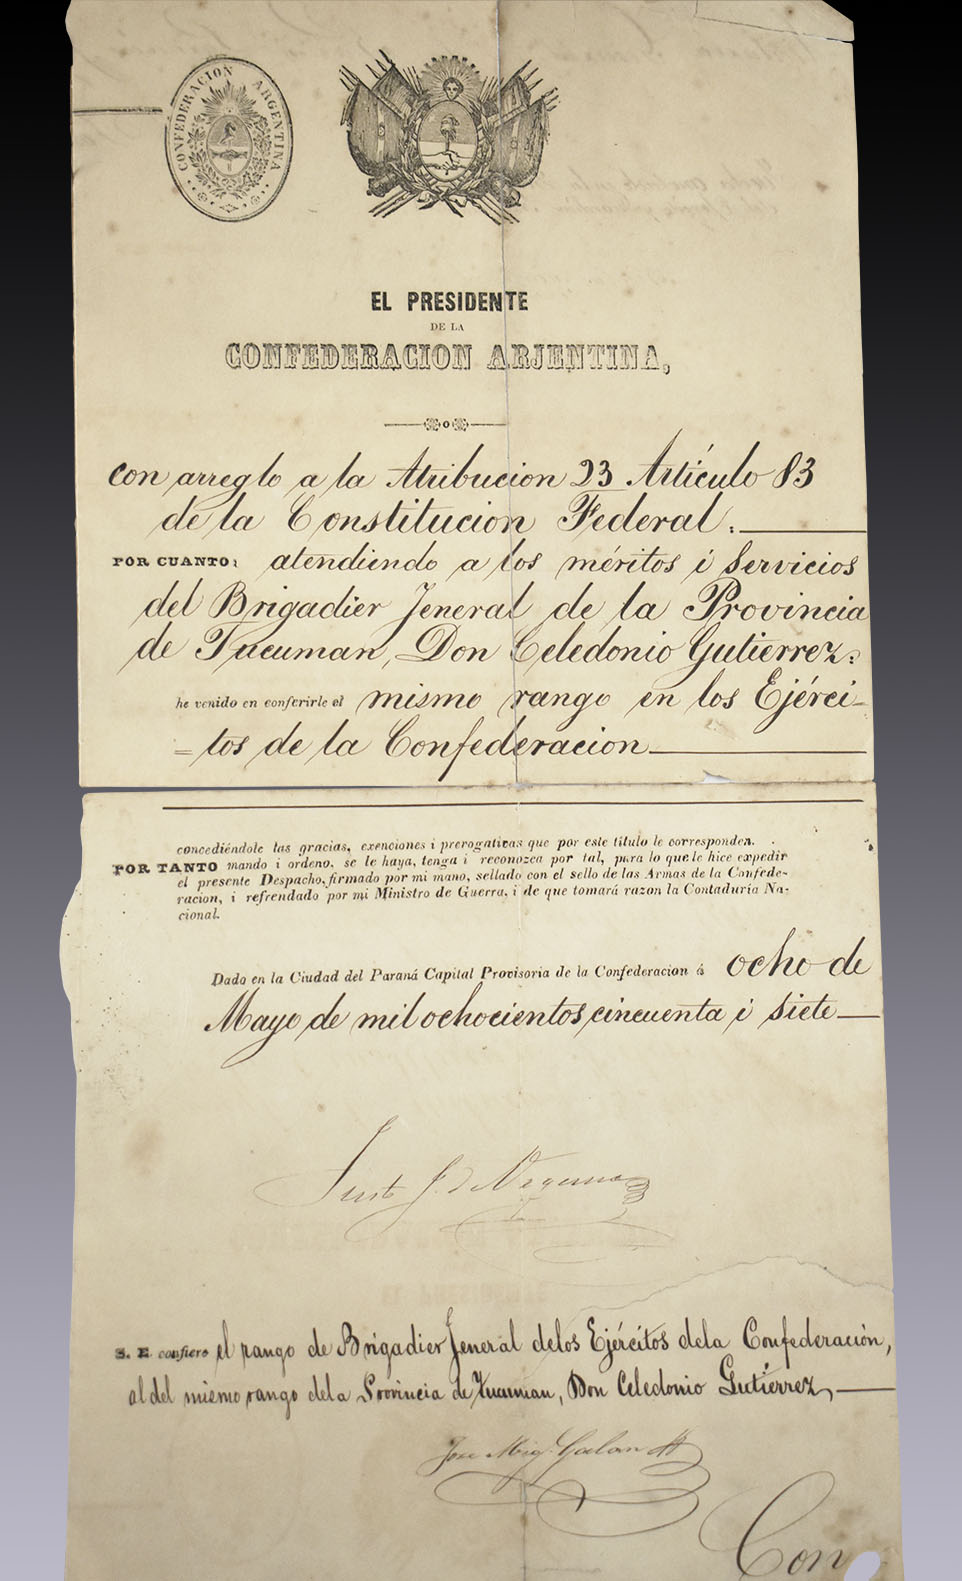 CONFEDERACION ARGENTINA
EL PRESIDENTE
DE LA
CONFEDERACION ARJENTINA,
con arreglo a la Atribucion 23 Artículo 83
de la Constitucion Federal.
POR CUANTO: atendiendo a los méritos i servicios
del Brigadier Jeneral de la Provincia
de Tucuman, Don Celedonio Gutierrez:
he venido en conferirle el mismo rango en los Ejérci-
=tos de la Confederacion
concediéndole las gracias, exenciones i prerogativas que por este título le corresponden.
POR TANTO mando i ordeno, se le haya, tenga i reconozca por tal, para lo que le hice expedir
el presente Despacho, firmado por mi mano, sellado con el sello de las Armas de la Confede-
racion, i refrendado por mi Ministro de Guerra, i de que tomará razon la Contaduría Na-
cional.
Dado en la Ciudad del Paraná Capital Provisoria de la Confederacion á ocho de
Mayo de mil ochocientos cincuenta i siete
Justo J. de Urquiza
S. E. confiere el rango de Brigadier Jeneral delos Ejércitos dela Confederación,
al del mismo rango dela Provincia de Tucuman, Don Celedonio Gutiérrez,
Jose Mig. Galan
Con